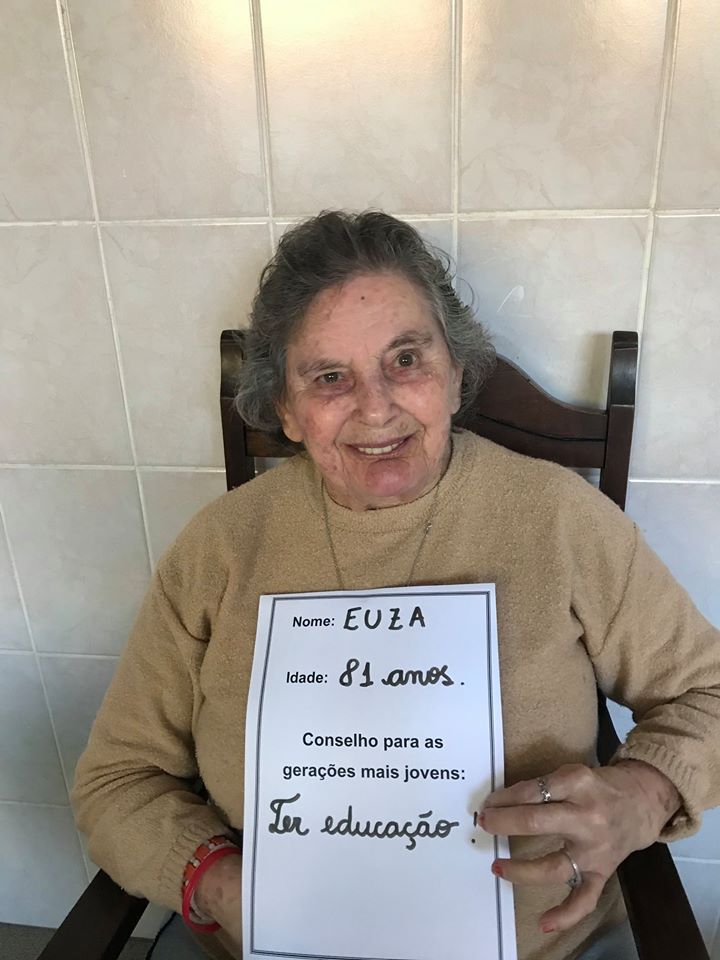 Nome: EUZA
Idade: 81 anos.
Conselho para as
gerações mais jovens:
Ter educação!